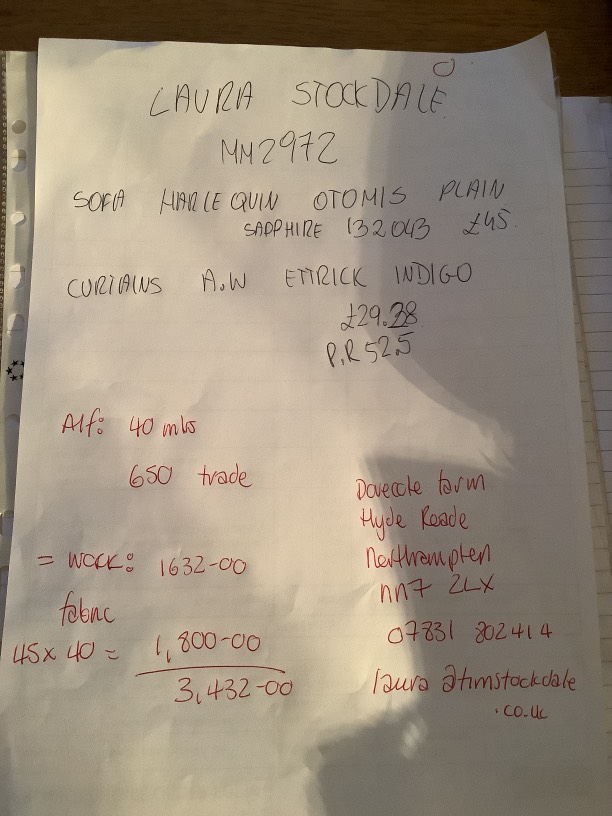 LAURA STOCKDALE
MM2972
SOFA HARLEQUIN OTOMIS PLAIN
SAPPHIRE 132043 £45.
CURTAINS A.W ETTRICK INDIGO
£29.38
P.R 52.5
Alf: 40 mts
650 trade
= WORK: 1632-00
fabric
45 x 40 = 1,800-00
3,432-00
Dovecote farm
Hyde Roade
Northampton
NN7 2LX
07831 802414
laura @timstockdale
.co.uk